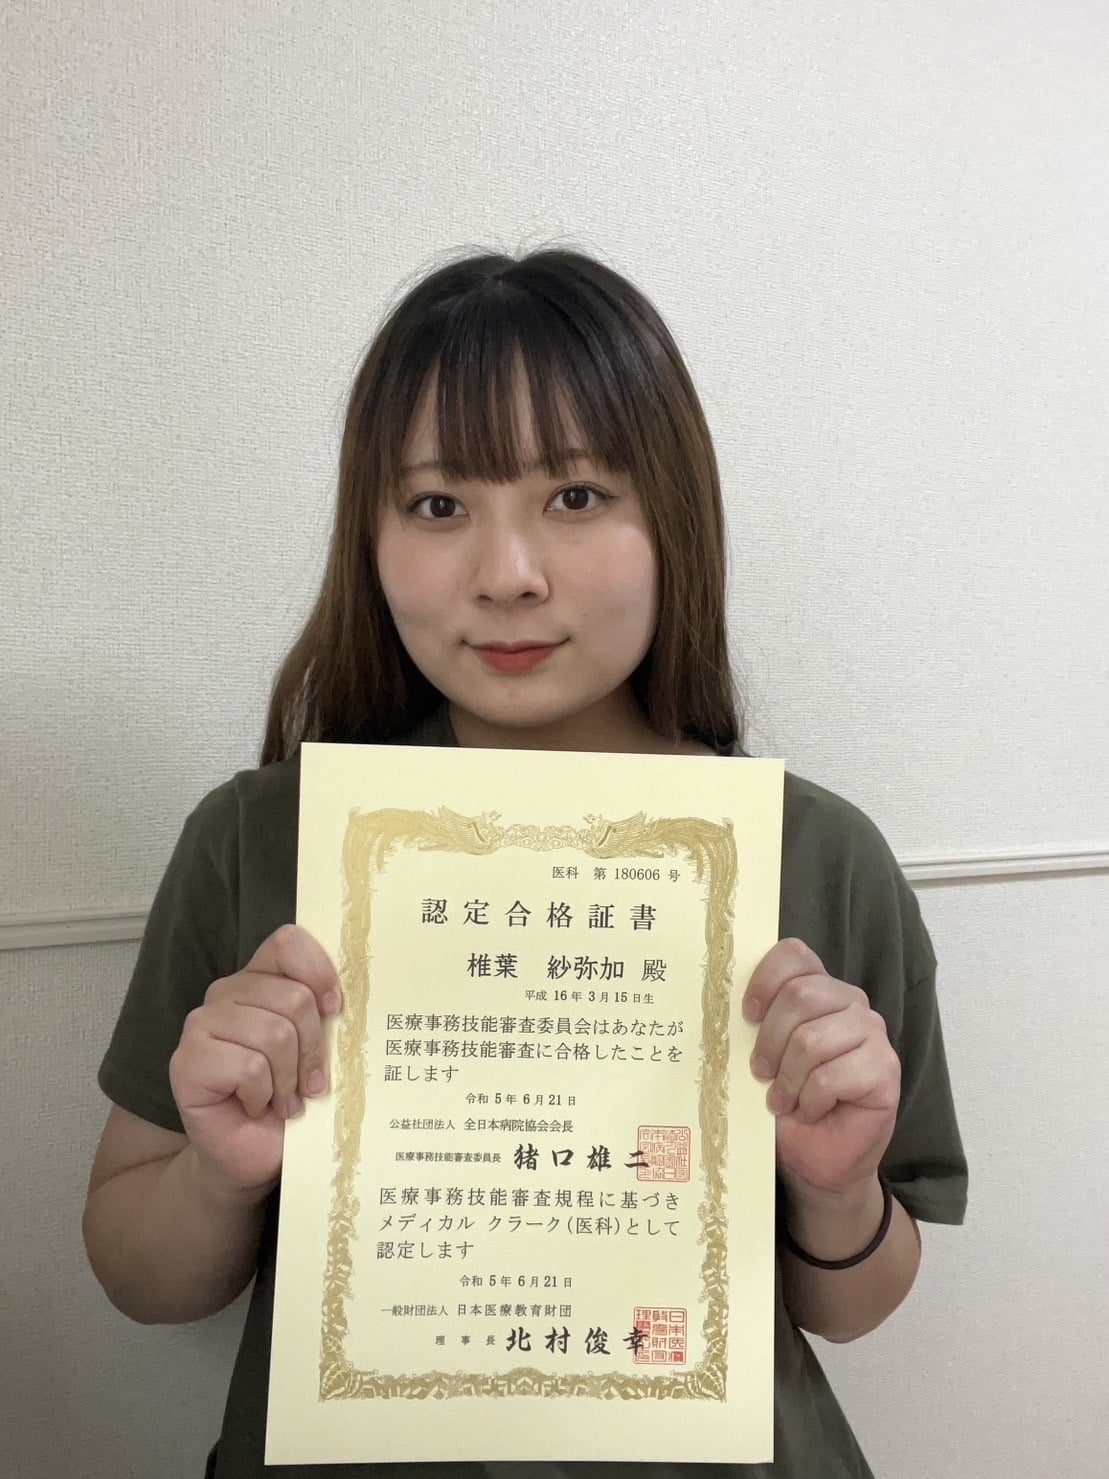 医科 第 180606 号
認定合格証書
椎葉 紗弥加 殿
平成 16 年 3 月 15 日生
医療事務技能審査委員会はあなたが
医療事務技能審査に合格したことを
証します
令和 5 年 6 月 21 日
公益社団法人 全日本病院協会会長
医療事務技能審査委員長 猪口雄二
医療事務技能審査規程に基づき
メディカル クラーク(医科)として
認定します
令和 5 年 6 月 21 日
一般財団法人 日本医療教育財団
理事長 北村俊幸